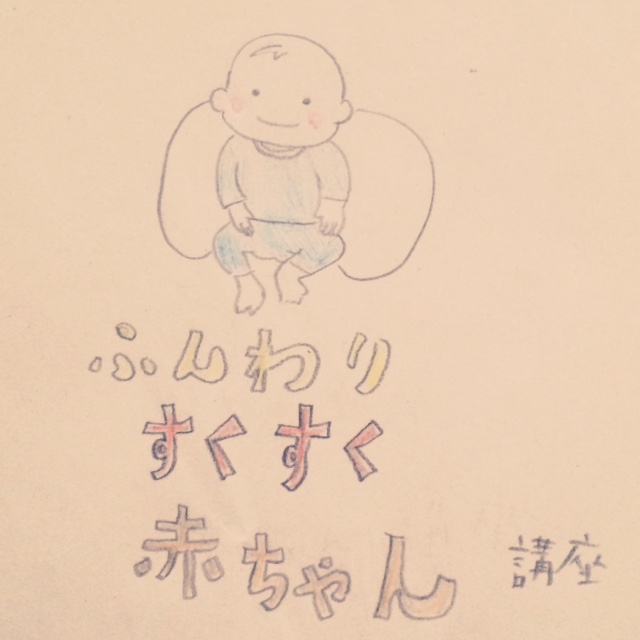 ふんわり
すくすく
赤ちゃん 講座